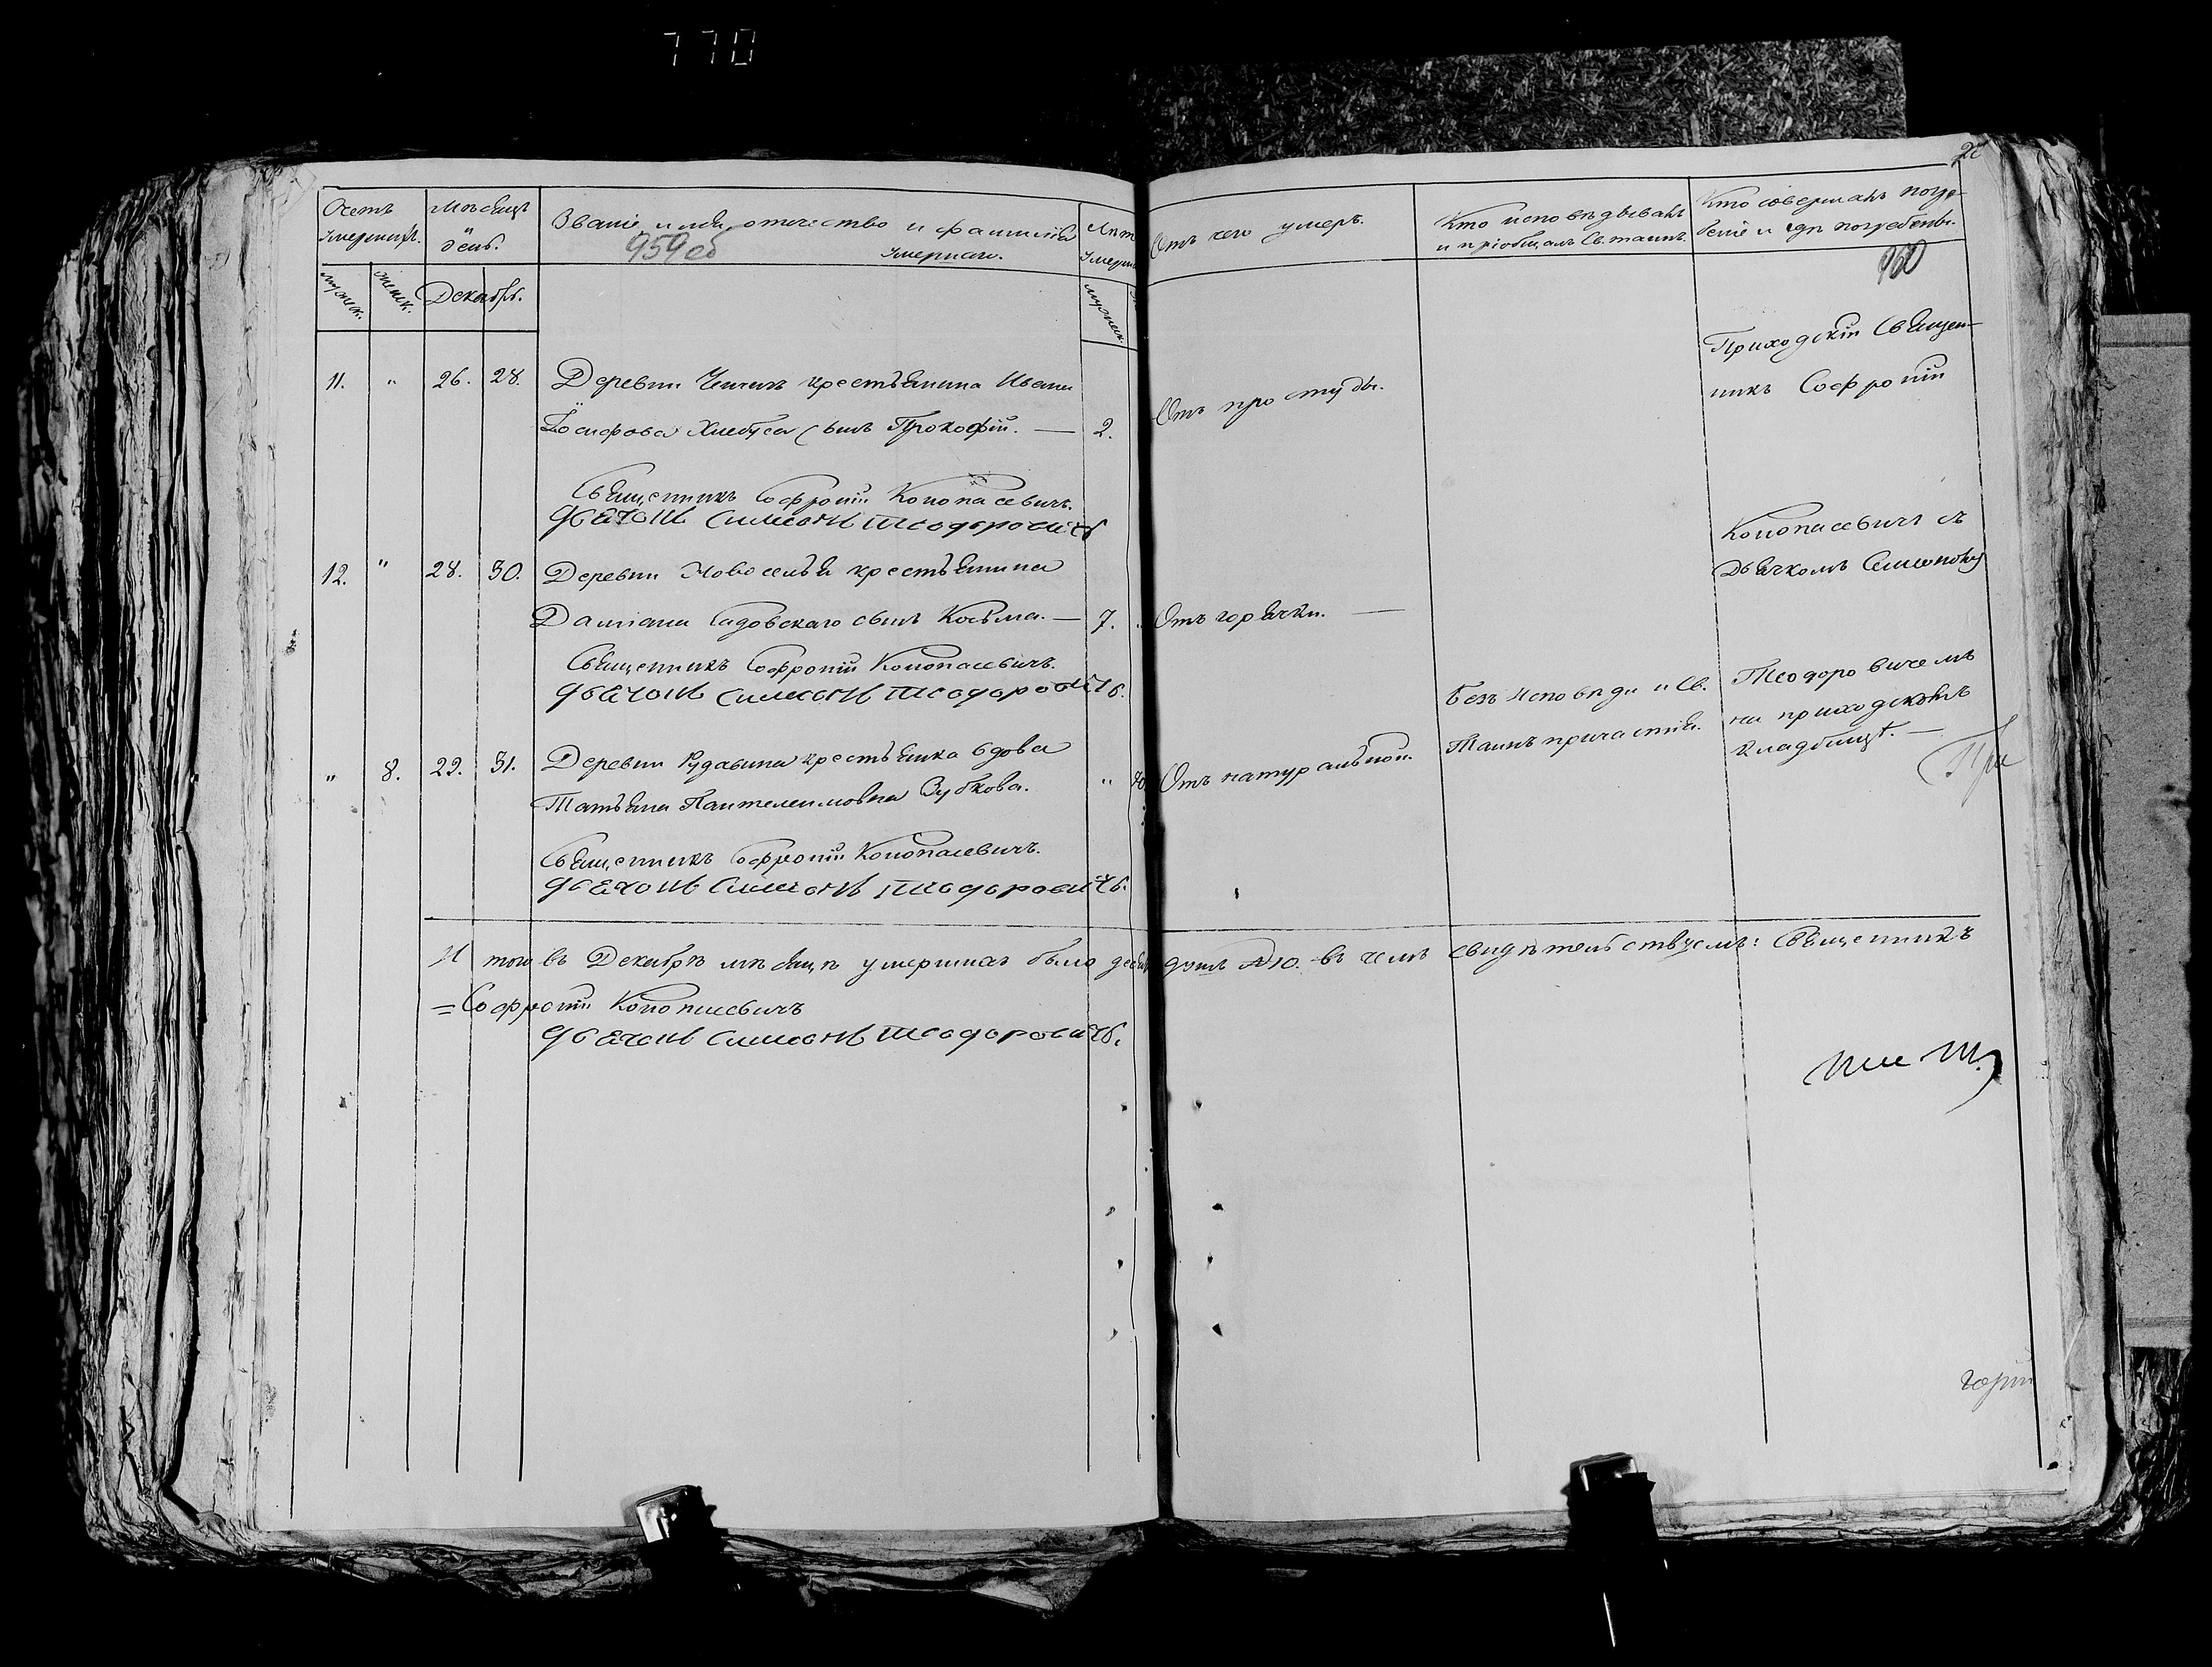 770
Счетъ
умершихъ.
Мѣсяцъ
и
день.
Званіе, имя, отчество и фамилія
умершаго.
959 об
Лѣт
умерш
мужеск.
женск.
Декабрь.
мужеск.
11. " 26. 28. Деревни крестьянина Ивана
Іосифова сынъ Прокофій. — 2.
Священникъ Софроній Конопасевичъ.
дьячокъ Симеонъ Теодоровичъ
12. " 28. 30. Деревни Новоселья крестьянина
Даміана Садовскаго сынъ Косьма. — 7.
Священникъ Софроній Конопасевичъ.
дьячокъ Симеонъ Теодоровичъ.
" 8. 29. 31. Деревни Рудавина крестьянка вдова
Татьяна Пантелеимовна Зубкова. "
Священникъ Софроній Конопасевичъ.
дьячокъ Симеонъ Теодоровичъ.
Итого въ Декабрѣ мѣсяцѣ умершихъ было
= Софроній Конопасевичъ
дьячокъ Симеонъ Теодоровичъ.
Отъ чего умеръ.
Кто исповѣдывалъ
и пріобщалъ Св. таинъ.
Кто совершалъ погре-
беніе и гдѣ погребены.
960
Отъ простуды.
Приходскій Священ-
никъ Софроній
Конопасевичъ съ
Дьячкомъ Симеономъ
Отъ горячки. —
Теодоровичемъ
на приходскомъ
кладбищѣ. —
Безъ Исповѣди и Св.
Таинъ причастія.
Отъ натуральной.
душъ №10. въ чемъ свидѣтельствуемъ: Священникъ